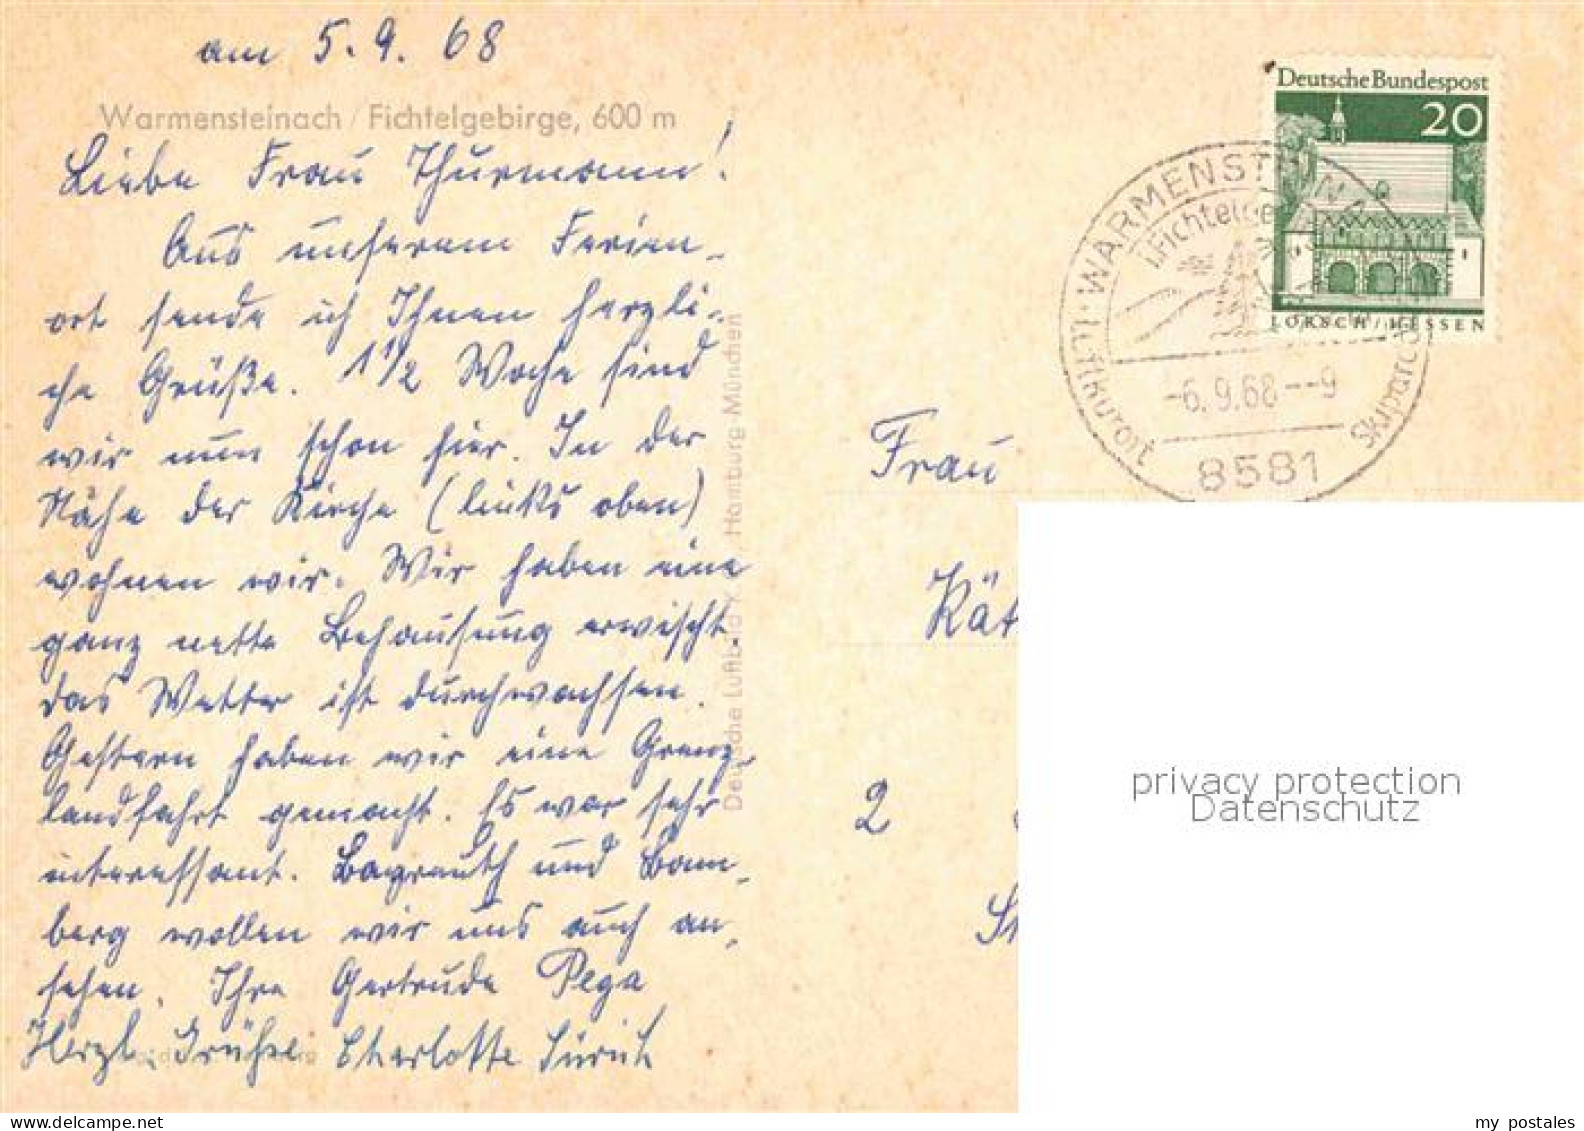 am 5.9.68
Warmensteinach / Fichtelgebirge, 600 m
Liebe Frau Thurmann!
Aus unserem Ferien-
ort sende ich Ihnen herzli-
che Grüße. 1 1/2 Woche sind
wir nun schon hier. In der
Nähe der Kirche (links oben)
wohnen wir. Wir haben eine
ganz nette Behausung erwischt.
das Wetter ist durchwachsen.
Gestern haben wir eine Grenz-
landfahrt gemacht. Es war sehr
interessant. Bayreuth und Bam-
berg wollen wir uns auch an-
sehen. Ihre Gertrude Pega
Herzl. Grüße Charlotte
Deutsche Luftbild K.G., Hamburg-München
Deutsche Bundespost
20
LORSCH / HESSEN
Luftkurort · WARMENSTEINACH
i.Fichtelge
Skiparad
-6.9.68--9
8581
Frau
Kät
2
St
privacy protection
Datenschutz
my postales
www.delcampe.net